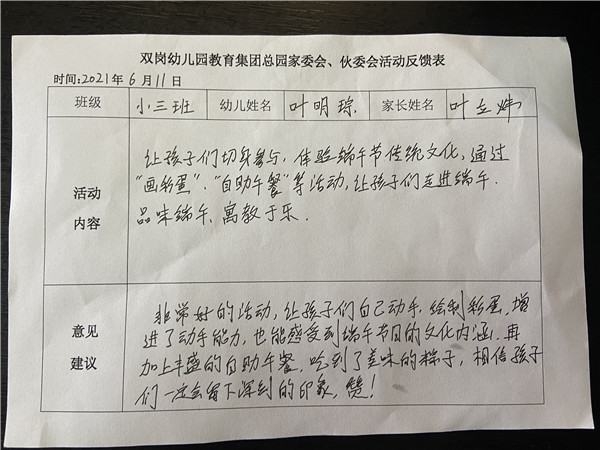 双岗幼儿园教育集团总园家委会、伙委会活动反馈表
时间:2021年6月11日
班级 小三班 幼儿姓名 叶明琮 家长姓名 叶立炜
让孩子们切身参与,体验端午节传统文化,通过
"画彩蛋"、"自助午餐"等活动,让孩子们走进端午.
活动
内容
品味端午、寓教于乐.
非常好的活动,让孩子们自己动手,绘制彩蛋,增
意见
建议
进了动手能力,也能感受到端午节日的文化内涵.再
加上丰盛的自助午餐,吃到了美味的粽子,相信孩子
们一定会留下深刻的印象,赞!